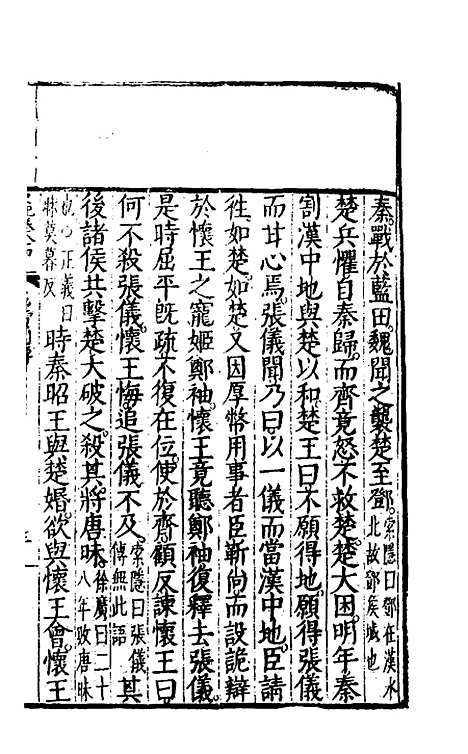 秦戰於藍田魏聞之襲楚至鄧索隱曰鄧在漢水北故鄧侯城也
楚兵懼自秦歸而齊竟怒不救楚楚大困明年秦
割漢中地與楚以和楚王曰不願得地願得張儀
而甘心焉張儀聞乃曰以一儀而當漢中地臣請
往如楚如楚又因厚幣用事者臣靳尚而設詭辯
於懷王之寵姬鄭袖懷王竟聽鄭袖復釋去張儀
是時屈平旣疏不復在位使於齊顧反諫懷王曰
何不殺張儀懷王悔追張儀不及索隱曰張儀傳無此語其
後諸侯共擊楚大破之殺其將唐昧徐廣曰二十八年敗唐昧
也正義曰昧莫暮反時秦昭王與楚婚欲與懷王會懷王